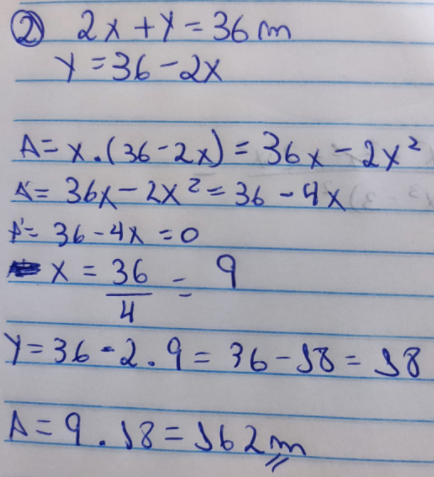 ② 2x + y = 36 m
y = 36 - 2x
A = x.(36 - 2x) = 36x - 2x²
A' = 36x - 2x² = 36 - 4x
A' = 36 - 4x = 0
x = 36/4 = 9
y = 36 - 2.9 = 36 - 18 = 18
A = 9.18 = 162 m